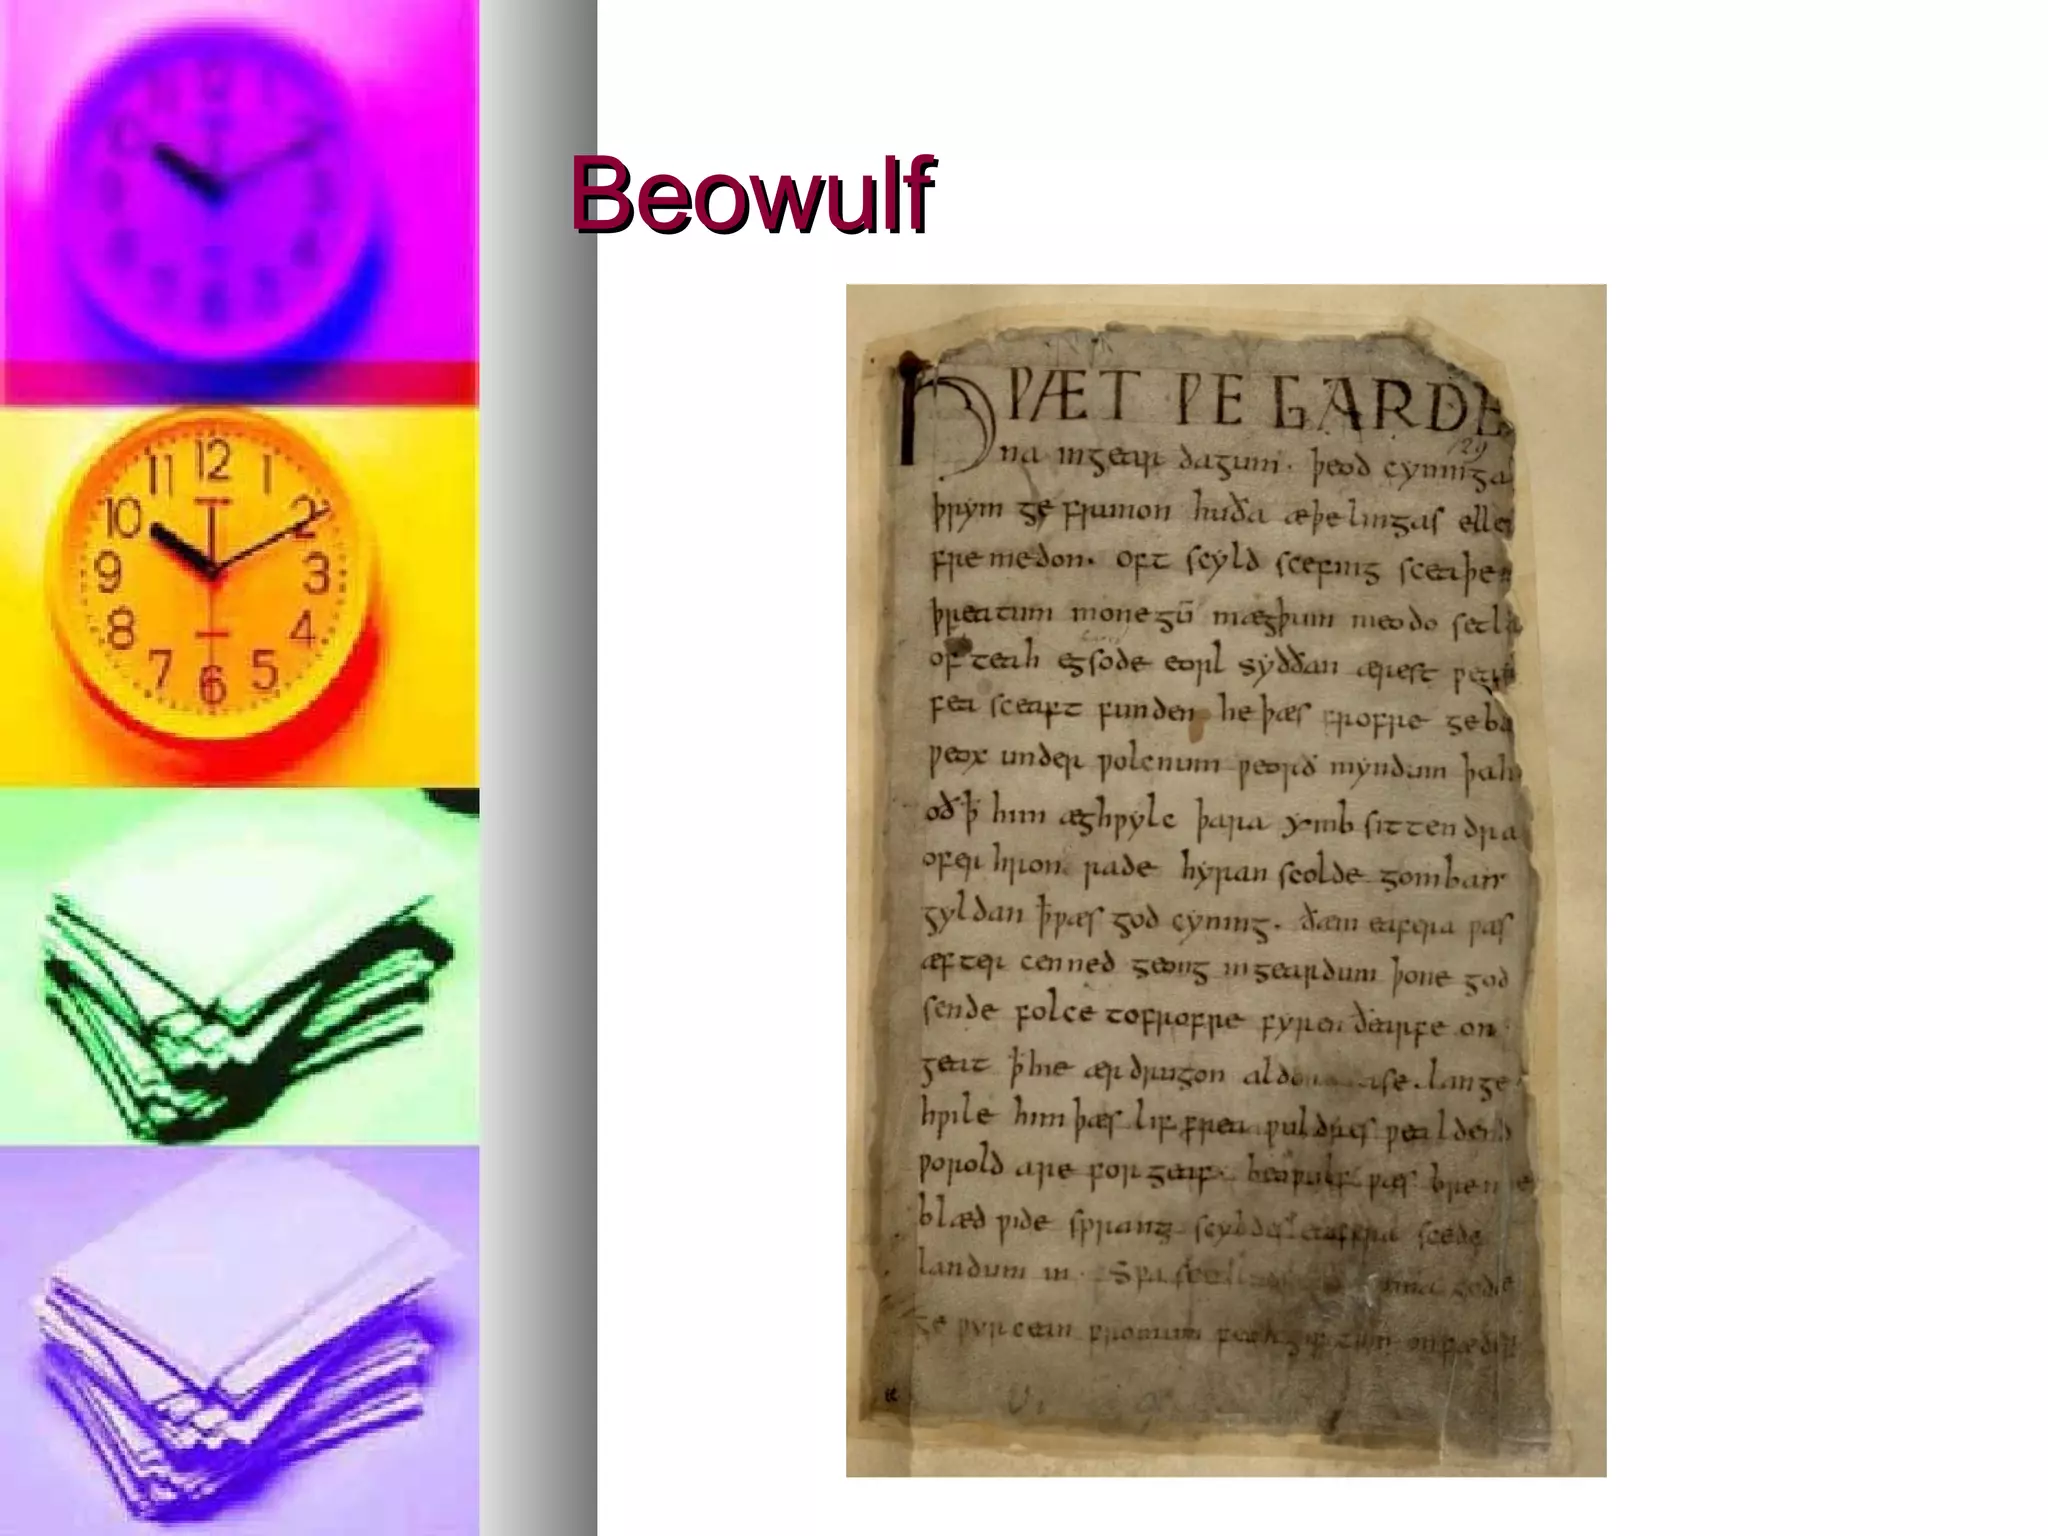 Beowulf
HǷÆT ǷE GARDE
129
na ingear dagum. þeod cyninga
þrym ge frunon huða æþelingas ellen
fremedon. oft scyld scefing sceaþena
þreatum monegū mægþum meodo setla
of teah egsode eorl syððan ærest ƿearð
fea sceaft funden he þæs frofre geba
ƿeox under ƿolcnum ƿeorð myndum þah
oð ꝥ him æghƿylc þara ymb sittendra
ofer hron rade hyran scolde gomban
gyldan ꝥ ƿæs god cyning. ðæm eafera ƿæs
æfter cenned geong ingeardum þone god
sende folce tofrofre fyren ðearfe on
geat ꝥ hie ær drugon aldor ase. lange
hƿile him þæs lif frea ƿuldres ƿealdend
ƿorold are for geaf. beoƿulf ƿæs breme
blæd ƿide sprang scyldes eafera scede
landum in. Sƿa gode
ge ƿyrcean fromum feoh giftum on fæder